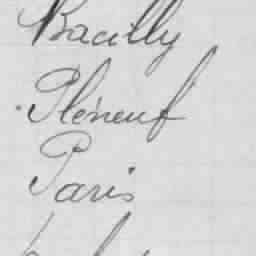 Bacilly
Pléneuf
Paris